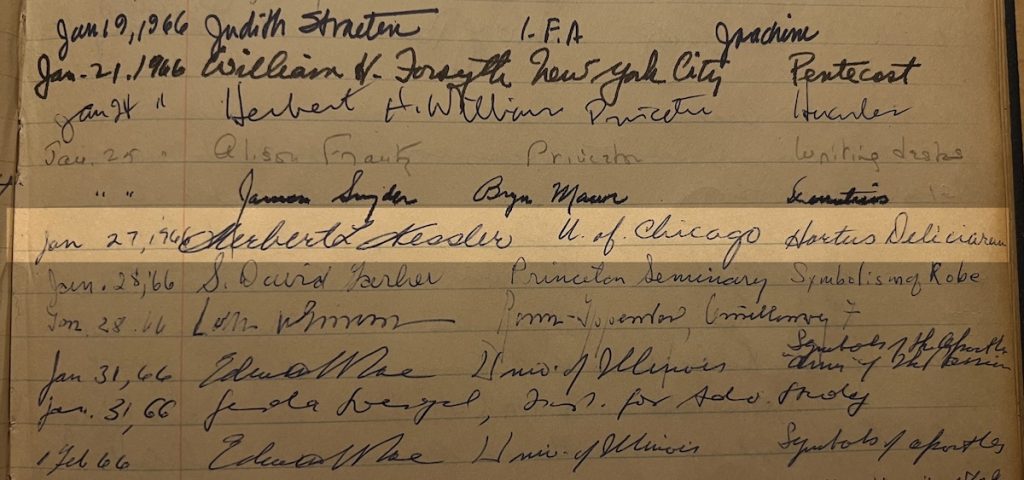 Jan 19, 1966 Judith Straeten I.F.A Joachim
Jan. 21. 1966 William H. Forsyth New York City Pentecost
Jan 24 " Herbert H. Williams
Jan. 25 " Alison Frantz Princeton Writing desks
" " James Snyder Bryn Mawr
Jan 27, 1966 Herbert L Kessler U. of Chicago Hortus Deliciarum
Jan. 28, '66 S. David Garber Princeton Seminary Symbolism of Robe
Jan. 28. 66
Symbols of the Apostles
Jan 31, 66 Edward Rae Univ. of Illinois Arms of the Passion
Jan. 31, 66 Gerda Inst. for Adv. Study
1 Feb 66 Edward Rae Univ. of Illinois Symbols of apostles